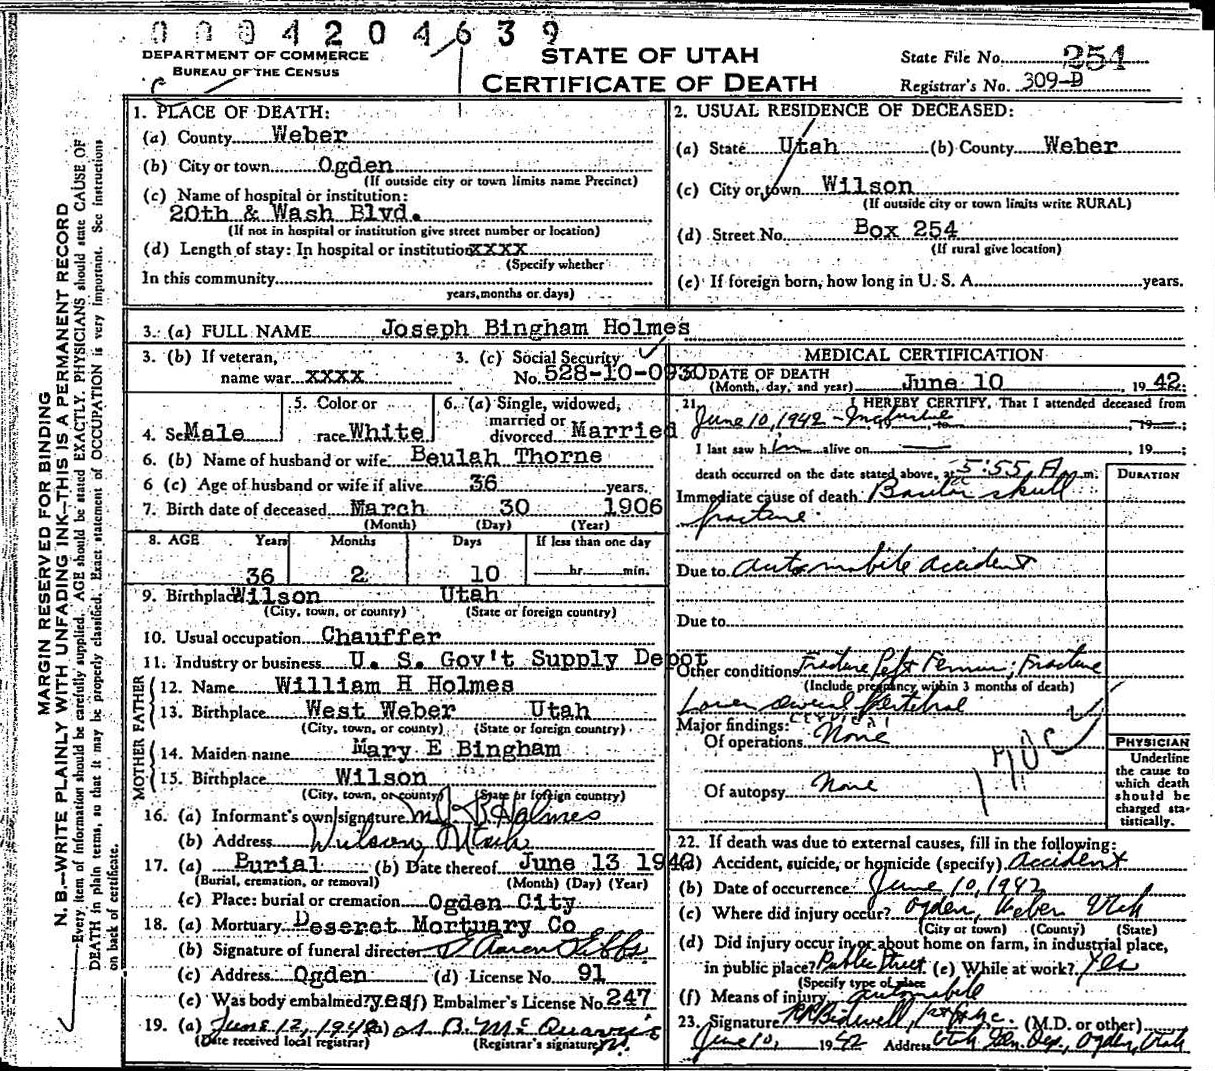 0 0 0 4 2 0 4 6 3 9
DEPARTMENT OF COMMERCE
BUREAU OF THE CENSUS
STATE OF UTAH
CERTIFICATE OF DEATH
State File No. 254
Registrar's No. 309-D
MARGIN RESERVED FOR BINDING
N. B.—WRITE PLAINLY WITH UNFADING INK—THIS IS A PERMANENT RECORD
—Every item of information should be carefully supplied. AGE should be stated EXACTLY. PHYSICIANS should state CAUSE OF
DEATH in plain terms, so that it may be properly classified. Exact statement of OCCUPATION is very important. See instructions
on back of certificate.
1. PLACE OF DEATH:
(a) County Weber
(b) City or town Ogden
(If outside city or town limits name Precinct)
(c) Name of hospital or institution:
20th & Wash Blvd.
(If not in hospital or institution give street number or location)
(d) Length of stay: In hospital or institution xxxx
(Specify whether
In this community
years, months or days)
2. USUAL RESIDENCE OF DECEASED:
(a) State Utah (b) County Weber
(c) City or town Wilson
(If outside city or town limits write RURAL)
(d) Street No. Box 254
(If rural give location)
(e) If foreign born, how long in U. S. A. years.
3. (a) FULL NAME Joseph Bingham Holmes
3. (b) If veteran,
name war xxxx
3. (c) Social Security
No. 528-10-0930
4. Sex Male
5. Color or
race White
6. (a) Single, widowed,
married or
divorced Married
6. (b) Name of husband or wife Beulah Thorne
6 (c) Age of husband or wife if alive 36 years.
7. Birth date of deceased March 30 1906
(Month) (Day) (Year)
8. AGE Years Months Days If less than one day
36 2 10 hr. min.
9. Birthplace Wilson Utah
(City, town, or county) (State or foreign country)
10. Usual occupation Chauffer
11. Industry or business U. S. Gov't Supply Depot
FATHER
12. Name William H Holmes
13. Birthplace West Weber Utah
(City, town, or county) (State or foreign country)
MOTHER
14. Maiden name Mary E Bingham
15. Birthplace Wilson
(City, town, or county) (State or foreign country)
16. (a) Informant's own signature B Holmes
(b) Address Wilson, Utah
17. (a) Burial (b) Date thereof June 13 1942
(Burial, cremation, or removal) (Month) (Day) (Year)
(c) Place: burial or cremation Ogden City
18. (a) Mortuary Deseret Mortuary Co
(b) Signature of funeral director
(c) Address Ogden (d) License No. 91
(e) Was body embalmed? yes (f) Embalmer's License No. 247
19. (a) June 12, 1942 (b)
(Date received local registrar) (Registrar's signature)
MEDICAL CERTIFICATION
20 DATE OF DEATH
(Month, day, and year) June 10, 19 42
21. I HEREBY CERTIFY, That I attended deceased from
June 10, 1942 to 19
I last saw him alive on 19
death occurred on the date stated above, at 5:55 A. m.
DURATION
Immediate cause of death Basilar skull
fracture.
Due to automobile accident
Due to
Other conditions Fracture Left Femur; Fracture
(Include pregnancy within 3 months of death)
Lower Cervical Vertebral
CERVICAL
Major findings:
Of operations None
170c
Of autopsy None
PHYSICIAN
Underline
the cause to
which death
should be
charged sta-
tistically.
22. If death was due to external causes, fill in the following:
(a) Accident, suicide, or homicide (specify) Accident
(b) Date of occurrence June 10, 1942
(c) Where did injury occur? Ogden, Weber Utah
(City or town) (County) (State)
(d) Did injury occur in or about home on farm, in industrial place,
in public place? Public Street (e) While at work? Yes
(Specify type of place
(f) Means of injury automobile
23. Signature (M.D. or other)
June 10, 1942 Address Utah Gen. Dep., Ogden, Utah